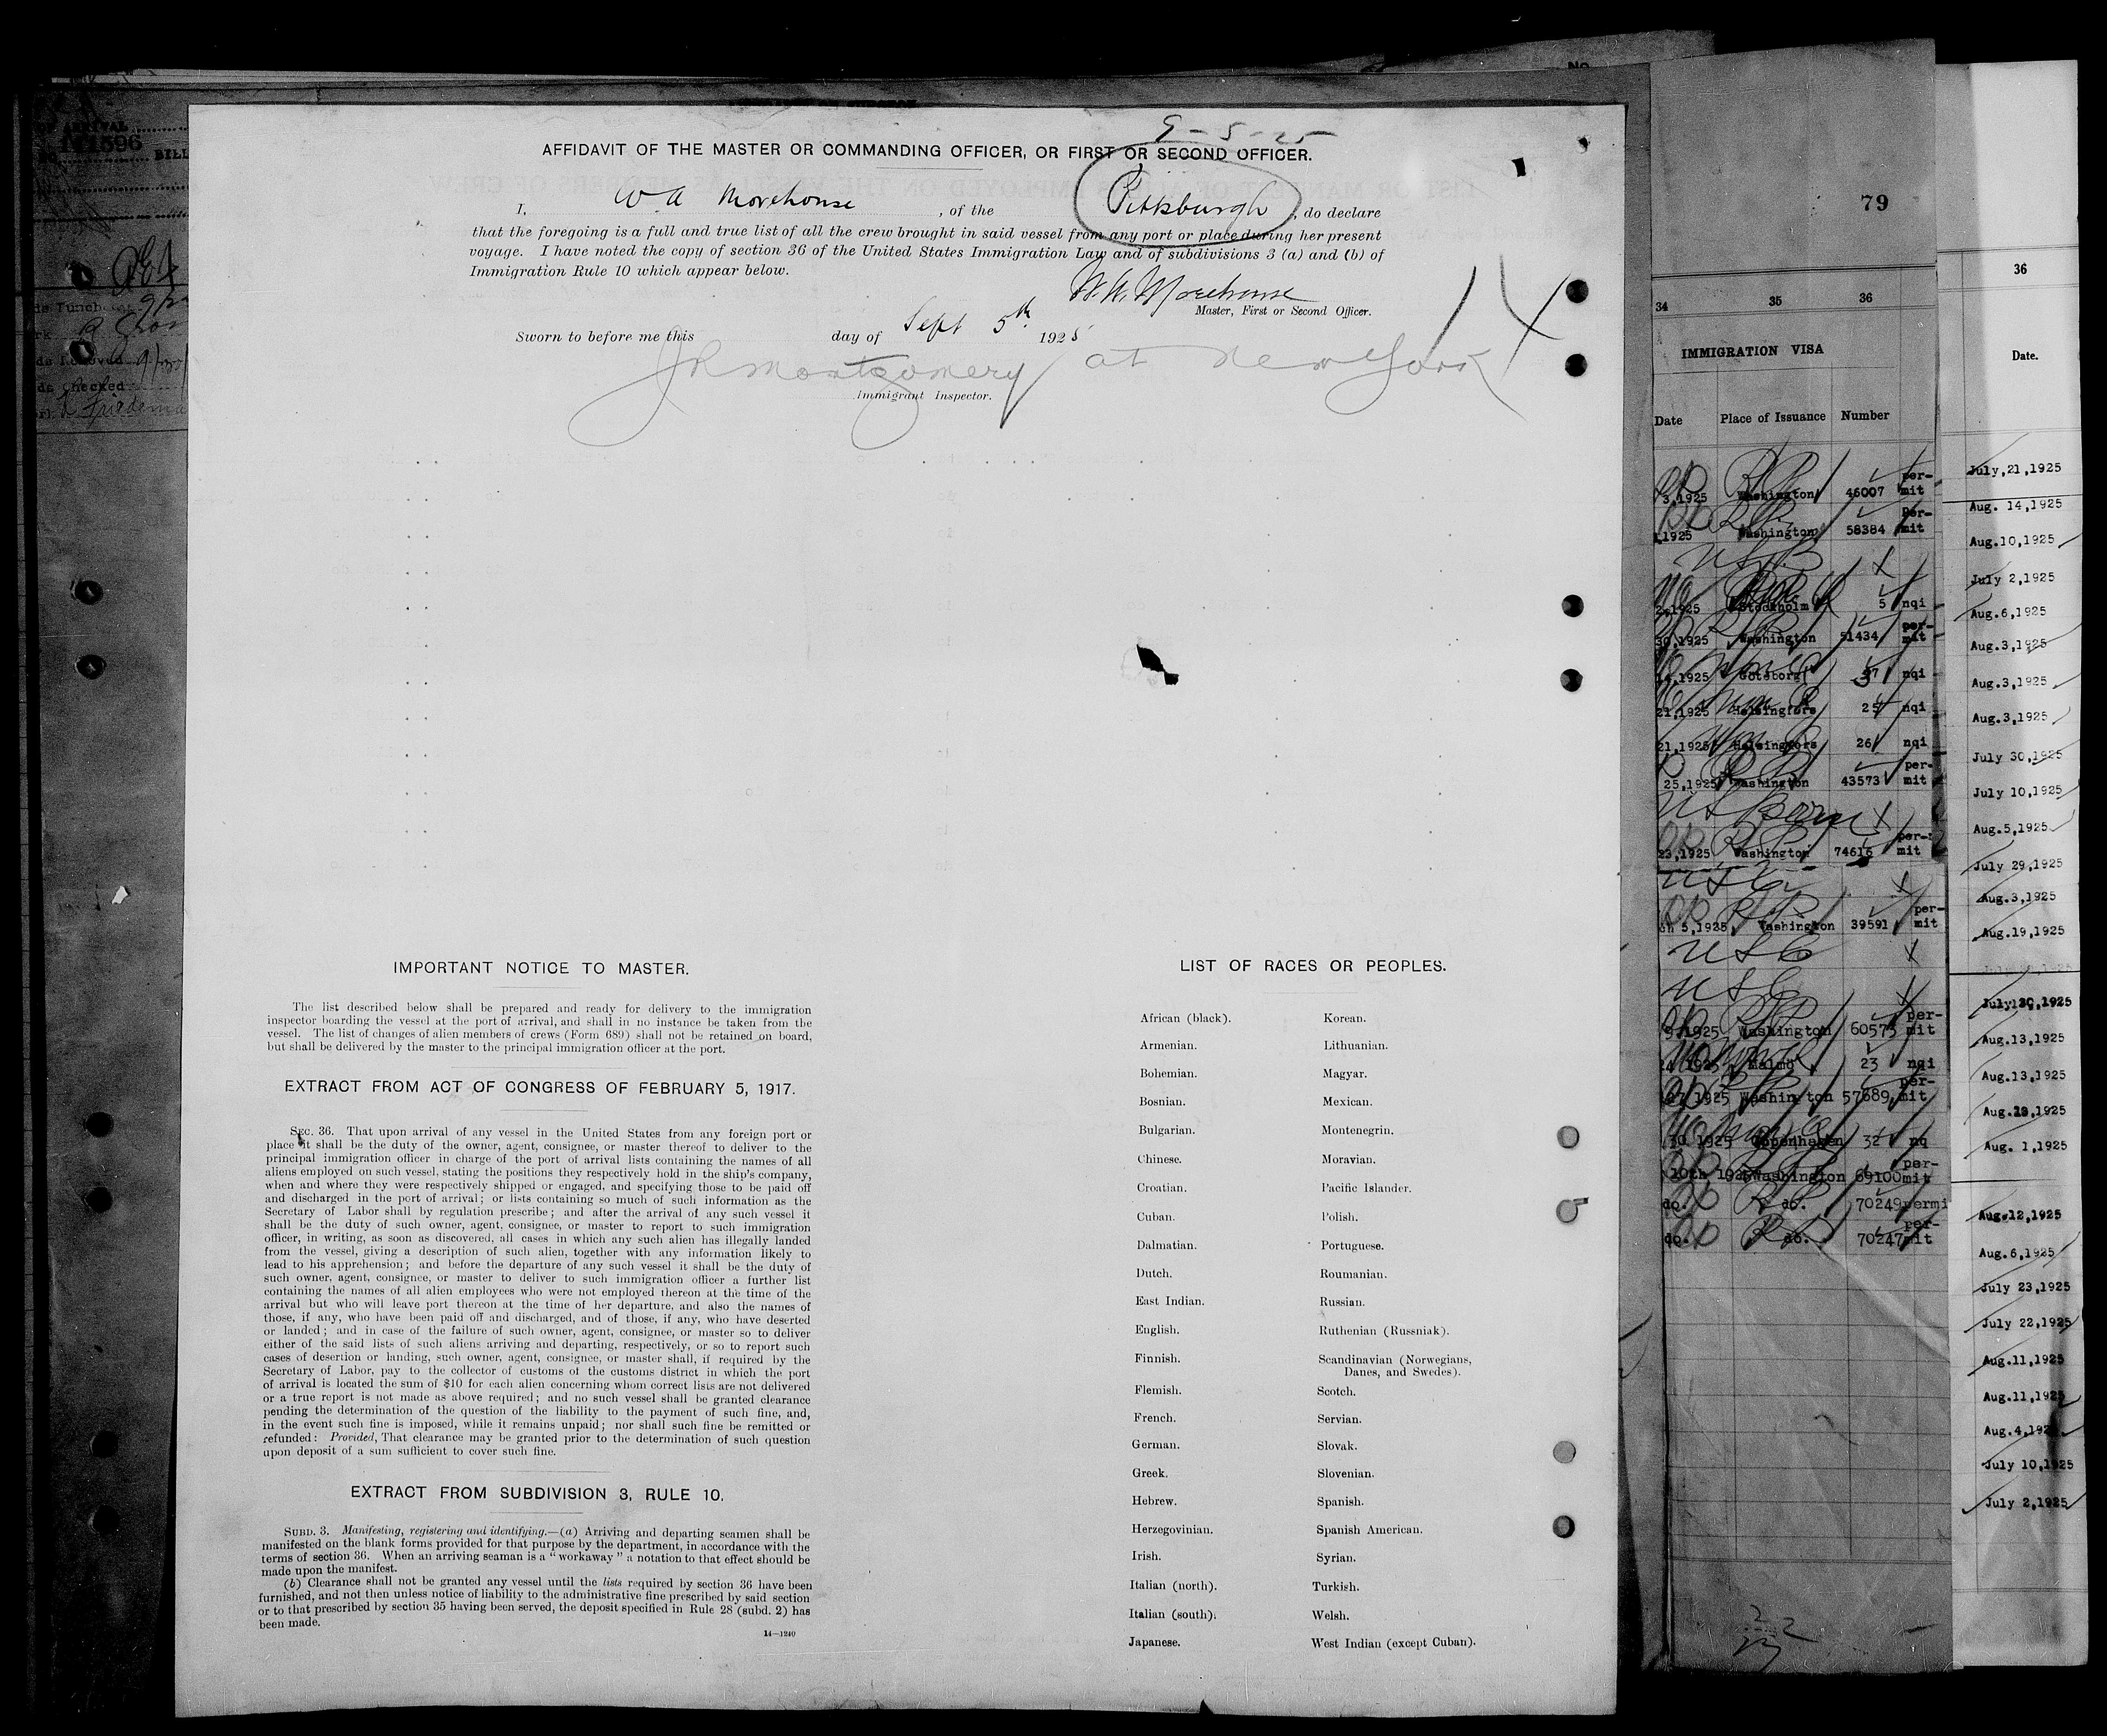 9-5-25
AFFIDAVIT OF THE MASTER OR COMMANDING OFFICER, OR FIRST OR SECOND OFFICER.
I, W A Morehouse, of the Pittsburgh, do declare
that the foregoing is a full and true list of all the crew brought in said vessel from any port or place during her present
voyage. I have noted the copy of section 36 of the United States Immigration Law and of subdivisions 3 (a) and (b) of
Immigration Rule 10 which appear below.
W. A. Morehouse
Master, First or Second Officer.
Sworn to before me this day of Sept 5th 1925
Montgomery at New York
Immigrant Inspector.
14
IMPORTANT NOTICE TO MASTER.
The list described below shall be prepared and ready for delivery to the immigration
inspector boarding the vessel at the port of arrival, and shall in no instance be taken from the
vessel. The list of changes of alien members of crews (Form 689) shall not be retained on board,
but shall be delivered by the master to the principal immigration officer at the port.
EXTRACT FROM ACT OF CONGRESS OF FEBRUARY 5, 1917.
SEC. 36. That upon arrival of any vessel in the United States from any foreign port or
place it shall be the duty of the owner, agent, consignee, or master thereof to deliver to the
principal immigration officer in charge of the port of arrival lists containing the names of all
aliens employed on such vessel, stating the positions they respectively hold in the ship's company,
when and where they were respectively shipped or engaged, and specifying those to be paid off
and discharged in the port of arrival; or lists containing so much of such information as the
Secretary of Labor shall by regulation prescribe; and after the arrival of any such vessel it
shall be the duty of such owner, agent, consignee, or master to report to such immigration
officer, in writing, as soon as discovered, all cases in which any such alien has illegally landed
from the vessel, giving a description of such alien, together with any information likely to
lead to his apprehension; and before the departure of any such vessel it shall be the duty of
such owner, agent, consignee, or master to deliver to such immigration officer a further list
containing the names of all alien employees who were not employed thereon at the time of the
arrival but who will leave port thereon at the time of her departure, and also the names of
those, if any, who have been paid off and discharged, and of those, if any, who have deserted
or landed; and in case of the failure of such owner, agent, consignee, or master so to deliver
either of the said lists of such aliens arriving and departing, respectively, or so to report such
cases of desertion or landing, such owner, agent, consignee, or master shall, if required by the
Secretary of Labor, pay to the collector of customs of the customs district in which the port
of arrival is located the sum of $10 for each alien concerning whom correct lists are not delivered
or a true report is not made as above required; and no such vessel shall be granted clearance
pending the determination of the question of the liability to the payment of such fine, and,
in the event such fine is imposed, while it remains unpaid; nor shall such fine be remitted or
refunded: Provided, That clearance may be granted prior to the determination of such question
upon deposit of a sum sufficient to cover such fine.
EXTRACT FROM SUBDIVISION 3, RULE 10.
SUBD. 3. Manifesting, registering and identifying.—(a) Arriving and departing seamen shall be
manifested on the blank forms provided for that purpose by the department, in accordance with the
terms of section 36. When an arriving seaman is a "workaway" a notation to that effect should be
made upon the manifest.
(b) Clearance shall not be granted any vessel until the lists required by section 36 have been
furnished, and not then unless notice of liability to the administrative fine prescribed by said section
or to that prescribed by section 35 having been served, the deposit specified in Rule 28 (subd. 2) has
been made.
14—1240
LIST OF RACES OR PEOPLES.
African (black). Korean.
Armenian. Lithuanian.
Bohemian. Magyar.
Bosnian. Mexican.
Bulgarian. Montenegrin.
Chinese. Moravian.
Croatian. Pacific Islander.
Cuban. Polish.
Dalmatian. Portuguese.
Dutch. Roumanian.
East Indian. Russian.
English. Ruthenian (Russniak).
Finnish. Scandinavian (Norwegians,
Danes, and Swedes).
Flemish. Scotch.
French. Servian.
German. Slovak.
Greek. Slovenian.
Hebrew. Spanish.
Herzegovinian. Spanish American.
Irish. Syrian.
Italian (north). Turkish.
Italian (south). Welsh.
Japanese. West Indian (except Cuban).
79
34 35 36
IMMIGRATION VISA
Date Place of Issuance Number
3,1925 Washington 46007 per-
mit
1925 Washington 58384 per-
mit
USB
1925 Stockholm 5 nqi
30,1925 Washington 51434 per-
mit
14,1925 Goteborg 37 nqi
21,1925 Helsingfors 25 nqi
21,1925 Helsingfors 26 nqi
25,1925 Washington 43573 per-
mit
US Born
23,1925 Washington 74616 per-
mit
USC
5,1925 Washington 39591 per-
mit
USC
USC
1925 Washington 60573 per-
mit
1925 Malmö 23 nqi
27 1925 Washington 57689 per-
mit
30 1925 Copenhagen 32 nq
10th 1925 Washington 69100 per-
mit
do. do. 70249 permi
do. do. 70247 per-
mit
36
Date.
July,21,1925
Aug. 14,1925
Aug.10,1925
July 2,1925
Aug.6,1925
Aug.3,1925
Aug.3,1925
Aug.3,1925
July 30,1925
July 10,1925
Aug.5,1925
July 29,1925
Aug.3,1925
Aug.19,1925
July 30,1925
Aug.13,1925
Aug.13,1925
Aug. 1925
Aug. 1,1925
Aug.12,1925
Aug.6,1925
July 23,1925
July 22,1925
Aug.11,1925
Aug.11,1925
Aug.4,192
July 10,1925
July 2,1925